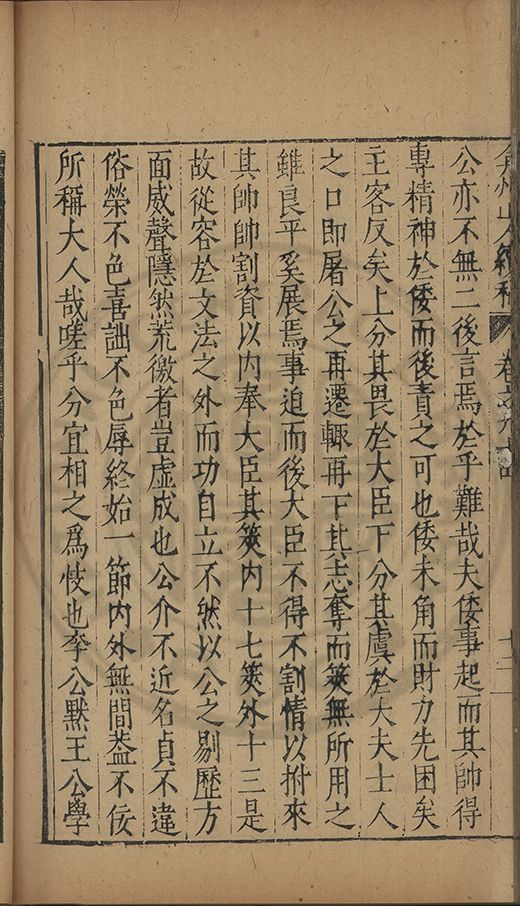 弇州山人續稿 卷之 十二
公亦不無二後言焉於乎難哉夫倭事起而其帥得
專精神於倭而後責之可也倭未角而財力先困矣
主客反矣上分其畏於大臣下分其虞於大夫士人
之口即屠公之再遷輙再下其志奪而筴無所用之
雖良平奚展焉事迫而後大臣不得不割情以拊來
其帥帥割資以内奉大臣其筴内十七筴外十三是
故從容於文法之外而功自立不然以公之剔歷方
面威聲隱然荒徼者豈虛成也公介不近名貞不違
俗榮不色喜詘不色辱終始一節内外無間葢不佞
所稱大人哉嗟乎分宜相之爲忮也李公默王公學